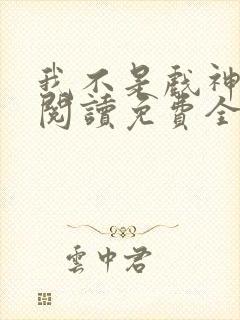 我不是戲神
閱讀免費全
雲中君